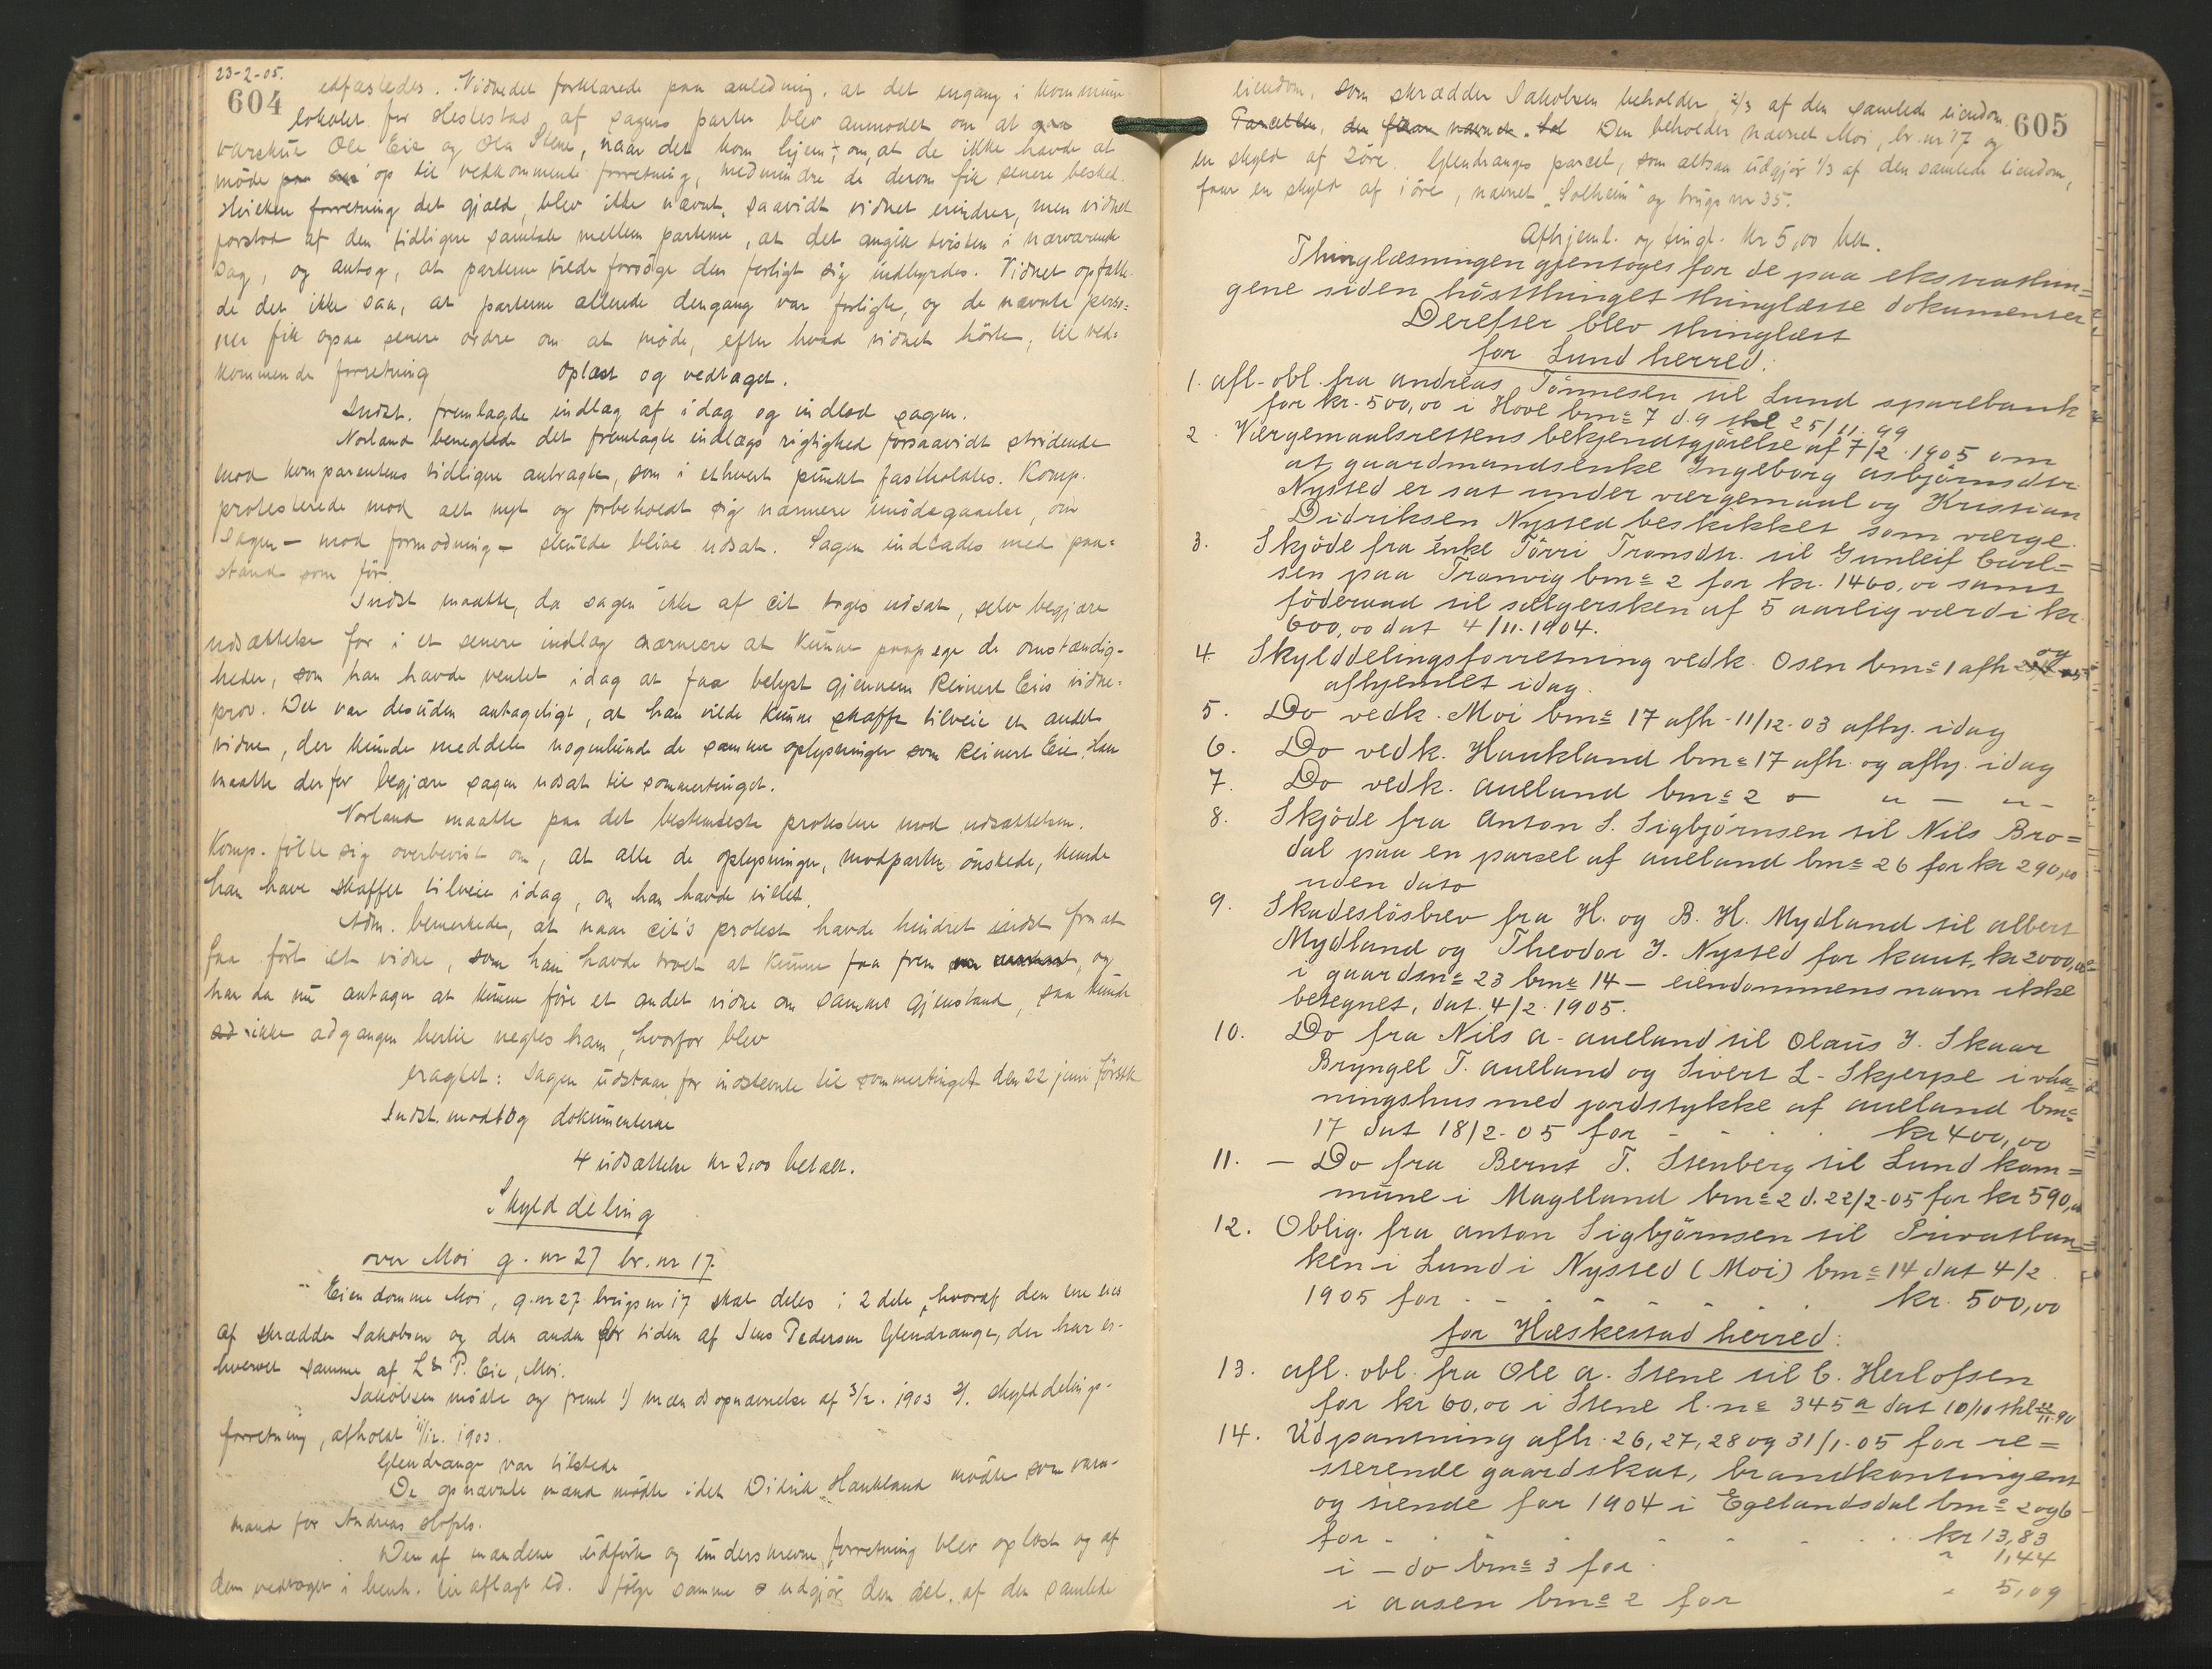 23-2-05.
604
edfæstedes. Vidnedet forklarede paa anledning, at det engang i kommune
lokalet for Heskestad af sagens parter blev anmodet om at
varskue Ole Eie og Ola Stene, naar det kom hjem, om, at de ikke havde at
møde op til vedkommende forretning, medmindre de derom fik senere besked.
Hvilken forretning det gjaldt, blev ikke nævnt, saavidt vidnet erindrer, men vidnet
forstod af den tidligere samtale mellem parterne, at det angik tvisten i nærværende
Sag, og antog, at parterne vilde forsøge den forligt sig indbyrdes. Vidnet opfatte-
de det ikke saa, at parterne allerede dengang var forligte, og de nævnte perso=
ner fik ogsaa senere ordre om at møde, efter hvad vidnet hørte, til ved=
kommende forretning Oplæst og vedtaget.
Indst. fremlagde indlæg af idag og indlod sagen.
Norland benegtede det fremlagte indlægs rigtighed forsaavidt stridende
mod komparentens tidligere anbragte, som i ethvert punkt fastholdtes. Komp.
protesterede mod alt nyt og forbeholdt sig nærmere imødegaaelse, om
Sagen - mod formodning - skulde blive udsat. Sagen indlodes med paa=
stand som før.
Indst maatte, da sagen ikke af cit toges udsat, selv begjære
udsættelse for i et senere indlæg nærmere at kunne paapege de omstændig-
heder, som han havde ventet idag at faa belyst gjennem Reinert Eies vidne-
prov. Det var desuden antageligt, at han vilde kunne skaffe tilveie et andet
vidne, der kunde meddele nogenlunde de samme oplysninger som Reinert Eie. Han
maatte derfor begjære sagen udsat til sommertinget.
Norland maatte paa det bestemteste protestere mod udsættelsen.
Komp. følte sig overbevist om, at alle de oplysninger, modparten ønskede, kunde
han have skaffet tilveie idag, om han havde villet.
Adm. bemerkede, at naar cit's protest havde hindret indst fra at
faa ført et vidne, som han havde troet at kunne faa frem, og
han da nu antager at kunne føre et andet vidne om samme gjenstand, saa kunde
ikke adgangen hertil negtes ham, hvorfor blev
eragtet: Sagen udstaar for indstevnte til sommertinget den 22 juni førstk
Indst. modtog dokumenterne
4 udsættelse kr 2,00 betalt.
Skylddeling
over Moi g. nr 27 br. nr 17.
Eiendomme Moi, g.nr 27 brugs nr 17 skal deles i 2 dele, hvoraf den ene eies
af skrædder Jakobsen og den anden for tiden af Jens Pedersen Glendrange, der har er-
hvervet samme af L & P. Eie, Moi.
Jakobsen mødte og freml 1) mændsopnævnelse af 3/2. 1903 2). skylddelings-
forretning, afholdt 11/12. 1903.
Glendrange var tilstede
De opnævnte mænd mødte idet Didrik Haukland mødte som vara-
mand for Andreas
Den af mændene udførte og underskrevne forretning blev oplæst og af
dem vedtaget i henh. til aflagt ed. Ifølge samme udgjør den del af den samlede
605
eiendom, som skrædder Jakobsen beholder, 2/3 af den samlede eiendom.
Parcellen, Den beholder navnet Moi, br. nr 17 og
en skyld af 2 øre. Glendranges parcel, som altsaa udgjør 1/3 af den samlede eiendom,
faar en skyld af 1 øre, navnet „Solheim" og brugs nr 35.
Afhjeml. og tingl. kr 5,00 bet.
Thinglæsningen gjentoges for de paa ekstrathin=
gene siden høstthinget thinglæste dokumenter
Derefter blev thinglæst
for Lund herred:
1. afl-obl. fra Andreas Tönnesen til Lund sparebank
for kr. 500,00 i Hove bnr 7 d. 9 thl 25/11. 99
2. Værgemaalsrettens bekjendtgjörelse af 7/2. 1905 om
at gaardmandsenke Ingeborg Asbjörnsdtr.
Nysted er sat under værgemaal og Kristian
Didriksen Nysted beskikket som værge.
3. Skjöde fra enke Törri Tronsdtr. til Gunleif Carl=
sen paa Tronvig bnr 2 for kr. 1400,00 samt
föderaad til sælgersken af 5 aarlig værdi kr.
600,00 dat 4/11. 1904.
4. Skylddelingsforretning vedk. Osen bnr 1 afh og
afhjemlet idag.
5. Do vedk. Moi bnr 17 afh-11/12-03 afhj. idag
6. Do vedk. Haukland bnr 17 afh. og afhj. idag
7. Do vedk. Aueland bnr 2 o — „ — „ —
8. Skjöde fra Anton S. Sigbjörnsen til Nils Bro=
dal paa en parsel af Aueland bnr 26 for kr 290,00
uden dato
9. Skadeslösbrev fra H. og B. H. Mydland til Albert
Mydland og Theodor J. Nysted for kaut. kr 2000,00
i gaardsnr 23 bnr 14 — eiendommens navn ikke
betegnet, dat. 4/2. 1905.
10. Do fra Nils A. Aueland til Olaus J. Skaar
Bryngel T. Aueland og Sivert L. Skjerpe i vaa=
ningshus med jordstykke af Aueland bnr
17 dat 18/2-05 for - - . . kr 400,00
11. — Do fra Bernt T. Stenberg til Lund kom=
mune i Magelland bnr 2 d. 22/2-05 for kr 590,00
12. Oblig. fra Anton Sigbjörnsen til Privatban=
ken i Lund i Nysted (Moi) bnr 14 dat 4/2.
1905 for - - - - - . kr. 500,00
for Heskestad herred:
13. afl. obl. fra Ole A. Stene til C. Herlofsen
for kr 60,00 i Stene l.nr 345a dat 10/10 thl 22/11.90
14. Udpantning afh. 26, 27, 28 og 31/1-05 for re=
sterende gaardskat, brandkontingent
og tiende for 1904 i Egelandsdal bnr 2 og 6
for - . . . . . kr 13,83
i — do bnr 3 for „ 1,44
i Aasen bnr 2 for „ 5,09